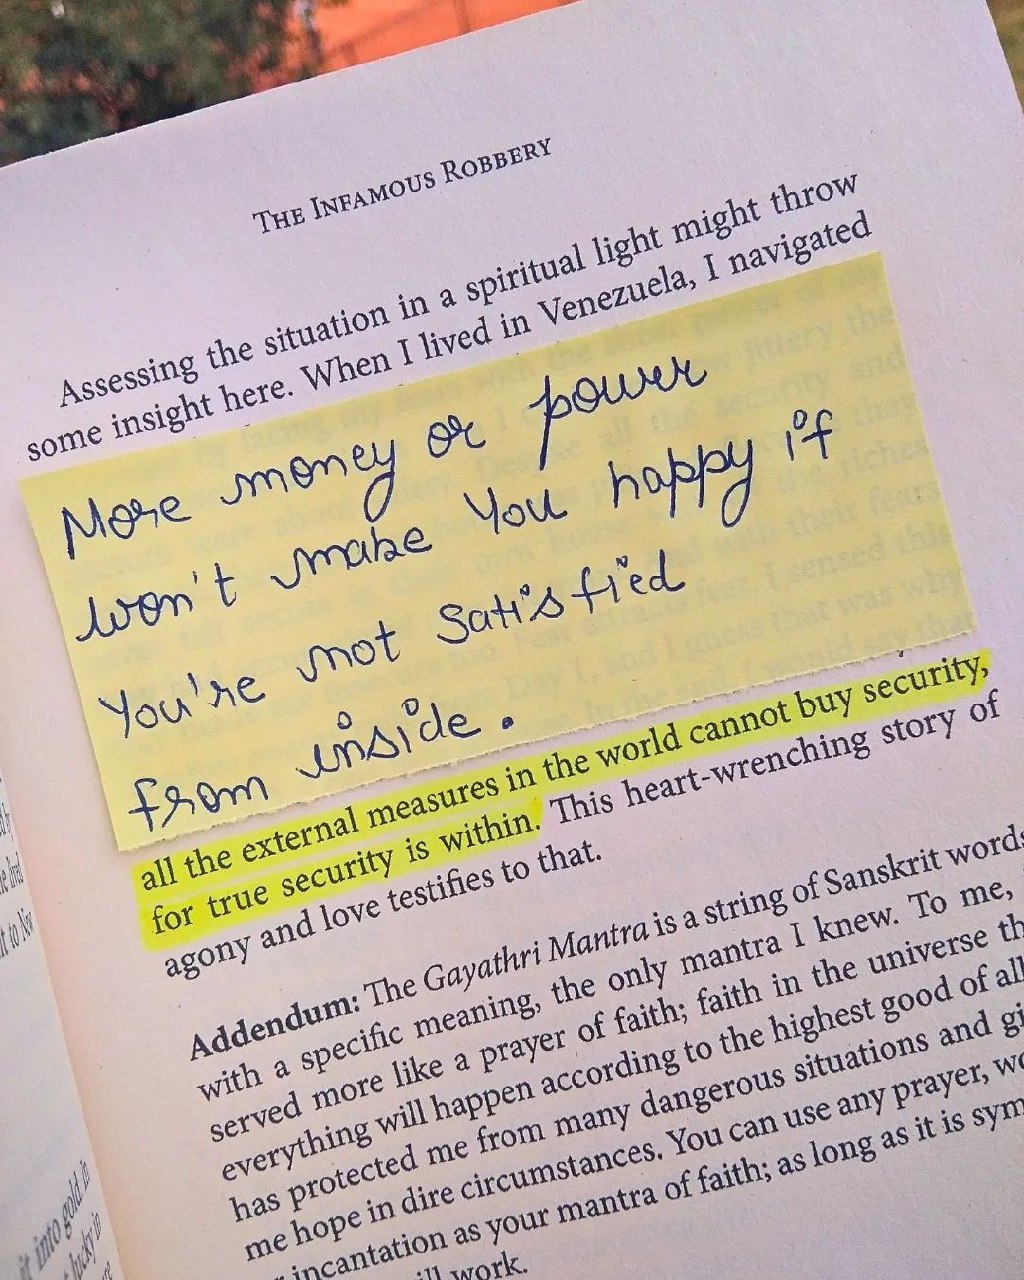 THE INFAMOUS ROBBERY
Assessing the situation in a spiritual light might throw
some insight here. When I lived in Venezuela, I navigated
More money or power
won't make You happy if
You're not Satisfied
from inside.
all the external measures in the world cannot buy security,
for true security is within. This heart-wrenching story of
agony and love testifies to that.
Addendum: The Gayathri Mantra is a string of Sanskrit words
with a specific meaning, the only mantra I knew. To me,
served more like a prayer of faith; faith in the universe
everything will happen according to the highest good of all
has protected me from many dangerous situations and
me hope in dire circumstances. You can use any prayer,
incantation as your mantra of faith; as long as it is
work.
it into gold
lucky